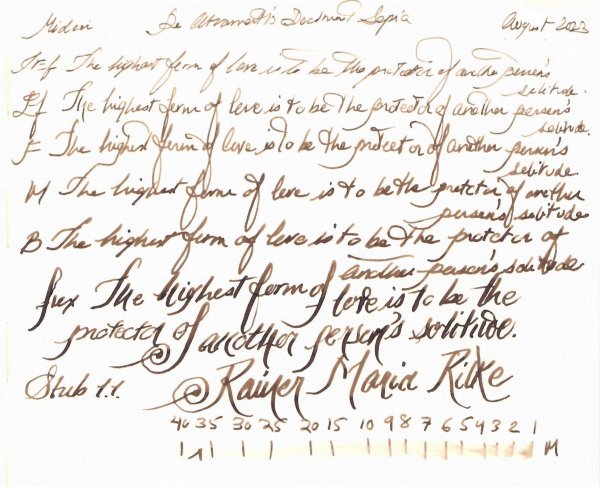 Midori De Atramentis Document Sepia August 2023
The highest form of love is to be the protector of another person's
solitude.
Ef The highest form of love is to be the protector of another person's
solitude.
F The highest form of love is to be the protector of another person's
solitude.
M The highest form of love is to be the protector of another
person's solitude
B The highest form of love is to be the protector of
another person's solitude
The highest form of love is to be the
protector of another person's solitude.
Stub 1.1. Rainer Maria Rilke
40 35 30 25 20 15 10 9 8 7 6 5 4 3 2 1
M